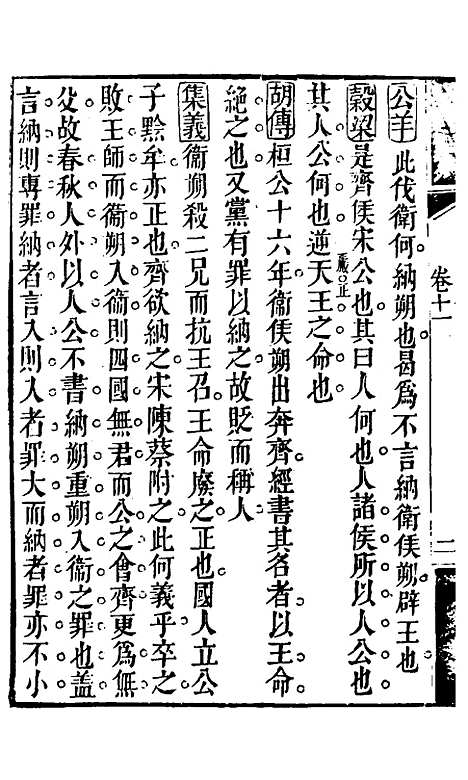 公羊 此伐衛何納朔也曷爲不言納衛侯朔辟王也
穀梁 是齊侯宋公也其曰人何也人諸侯所以人公也
其人公何也逆天王之命也
胡傳 桓公十六年衞侯朔出奔齊經書其名者以王命
絶之也又黨有罪以納之故貶而稱人
集義 衞朔殺二兄而抗王召王命廢之正也國人立公
子黔牟亦正也齊欲納之宋陳蔡附之此何義乎卒之
敗王師而衞朔入衞則四國無君而公之會齊更爲無
父故春秋人外以人公不書納朔重朔入衞之罪也蓋
言納則專罪納者言入則入者罪大而納者罪亦不小
卷十一
二